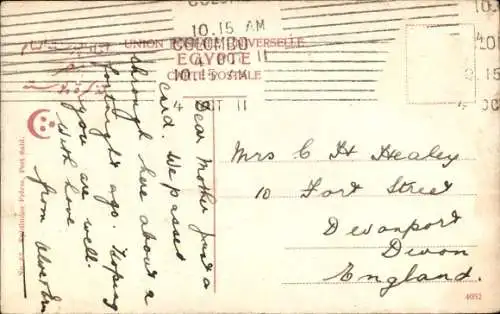 COLOMBO
10.15 AM
4 OCT 11
UNION POSTALE UNIVERSELLE
EGYPTE
CARTE POSTALE
Dear Mother Just a
card. We passed
through here about a
fortnight ago. Hoping
you are well.
With love
from
Mrs C H Healey
10 Fort Street
Devonport
Devon
England.
Port Said.
4052